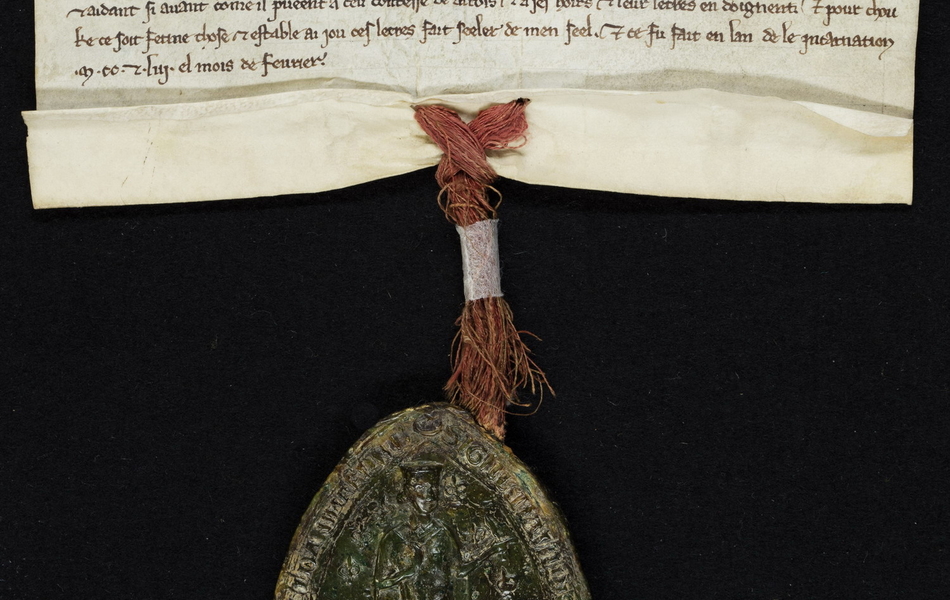 ⁊ aidant si avant come il pueent a ceu contesse de artois ⁊ a ses hoirs ⁊ leur letres en doignent ⁊ pour chou
ke ce soit ferme chose ⁊ estable ai jou ces letres fait seeler de men seel. ⁊ ce fu fait en lan de le incarnation
.m.cc. ⁊ .liij. el mois de fevrier.